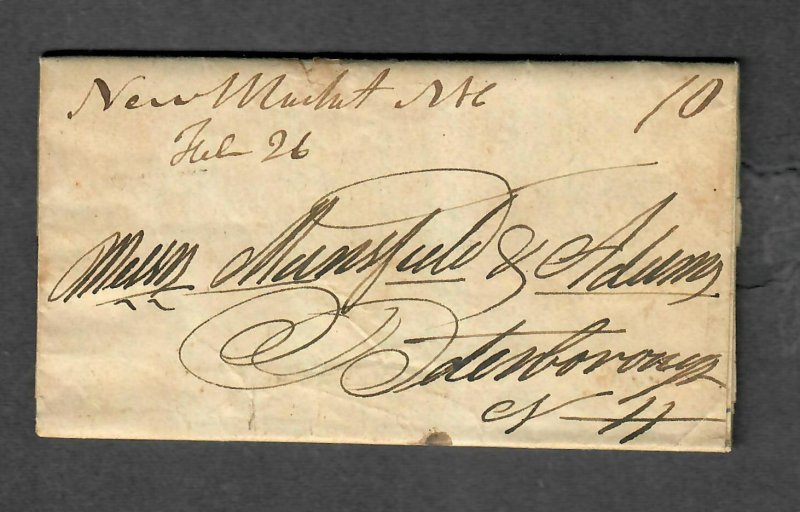 New Market NH 10
Feb 26
Messrs Mansfield & Adams
Peterborough
N H